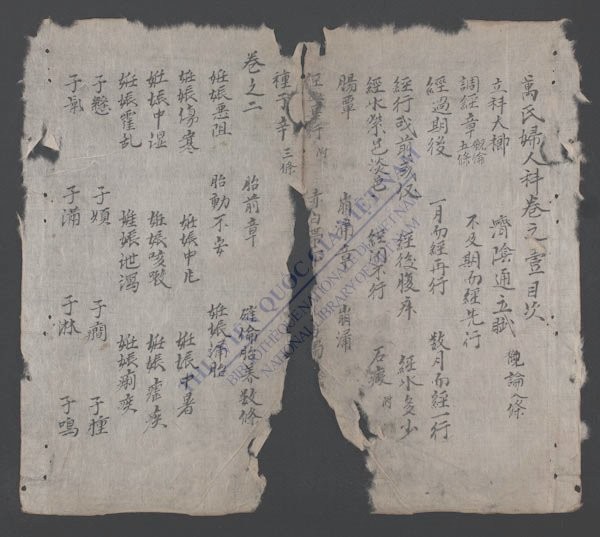 萬氏婦人科卷之壹目次
立科大槪 濟陰通玄賦 槪論八條
調經章 槪論五條 不及期而經先行
經過期後 一月而經再行 數月而經一行
經行或前或後 經後腹疼 經水多少
經水紫色淡色 經閉不行 石瘕 附
腸覃 崩漏章 崩漏
赤白帶
種子章 三條
卷之二 胎前章 確倫胎养数條
妊娠恶阻 胎動不安 妊娠漏胎
妊娠傷寒 妊娠中風 妊娠中暑
妊娠中湿 妊娠咳嗽 妊娠瘧疾
妊娠霍乱 妊娠泄瀉 妊娠痢疾
子懸 子煩 子癇 子腫
子氣 子滿 子淋 子鳴
THƯ VIỆN QUỐC GIA VIỆT NAM
BIBLIOTHÈQUE NATIONALE DU VIETNAM
NATIONAL LIBRARY OF VIETNAM